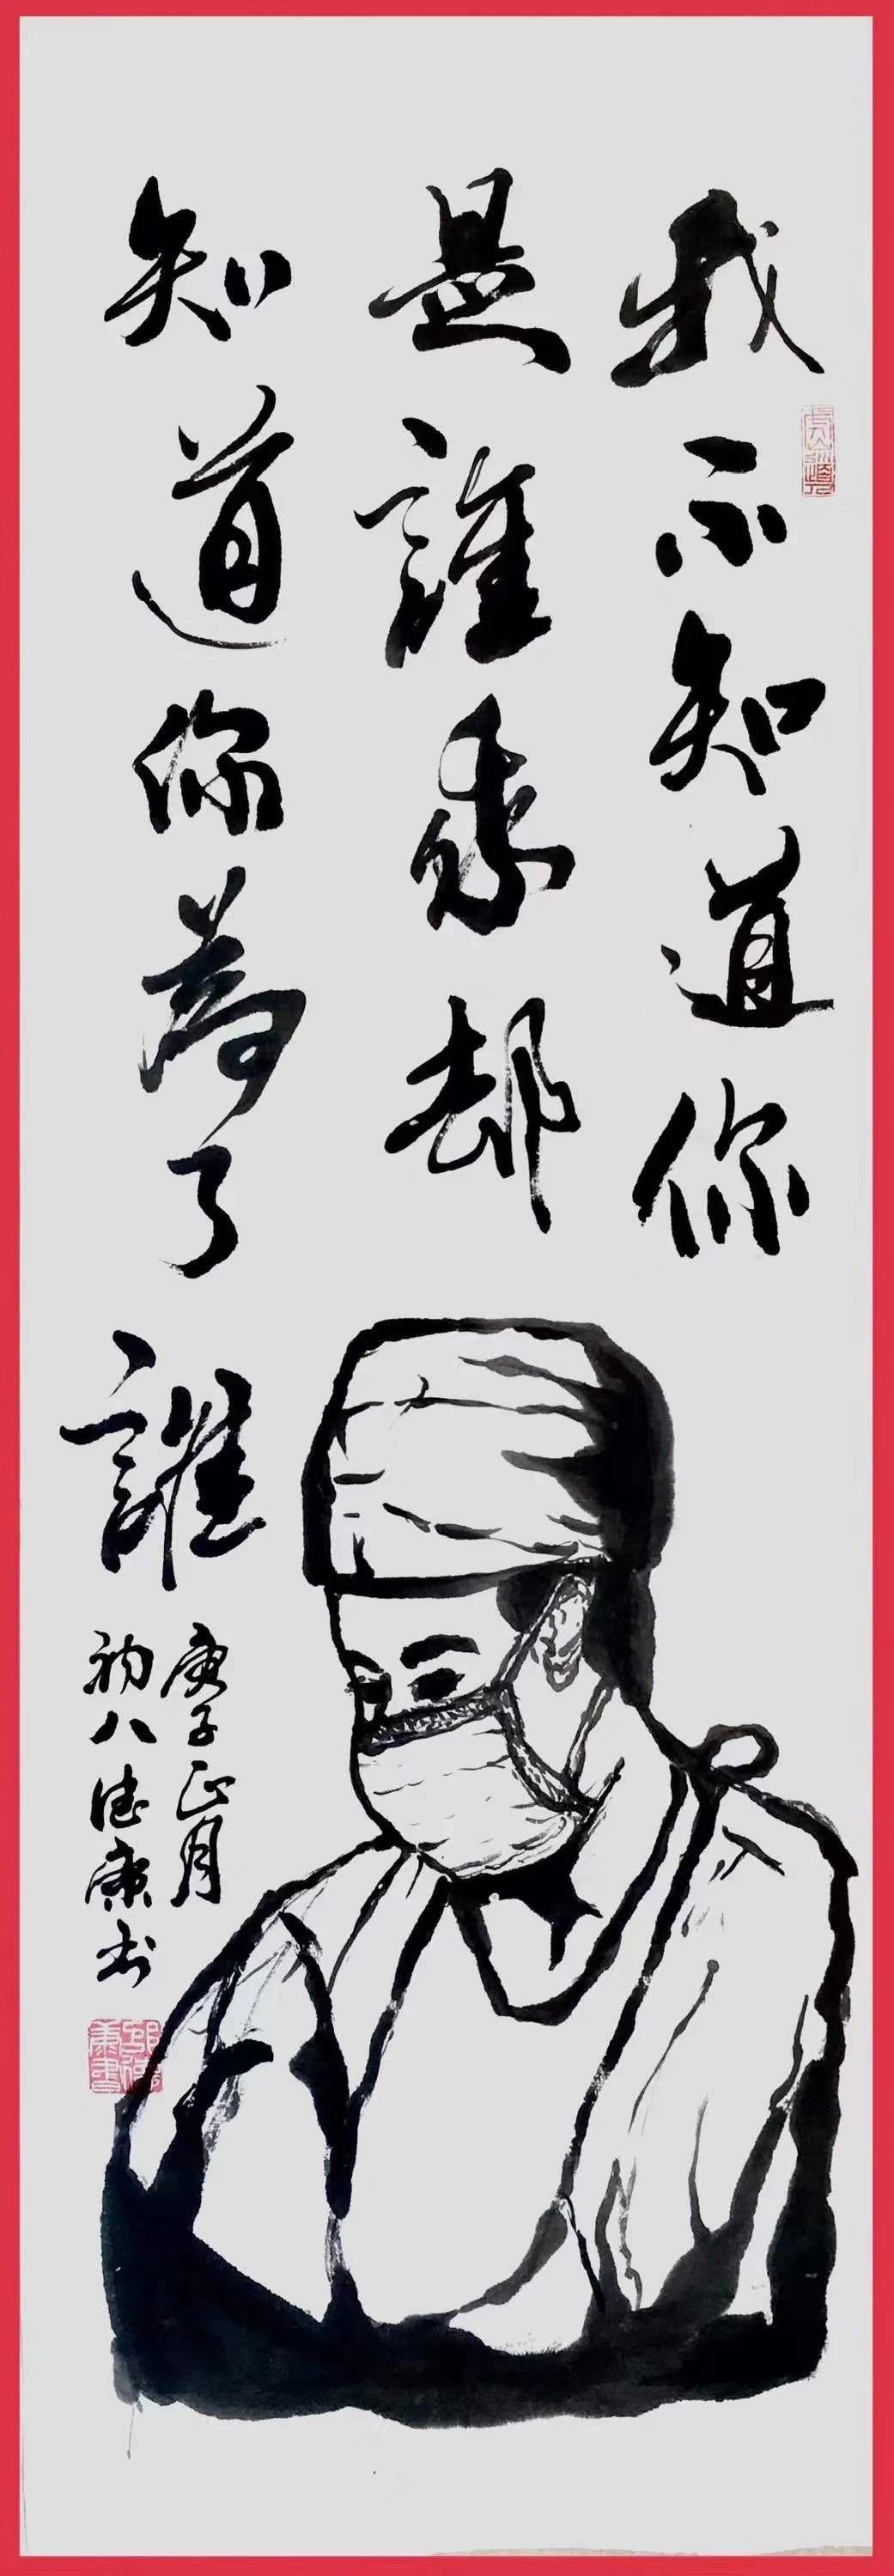 我不知道你
是誰我却
知道你為了
誰
庚子正月
初八德康书